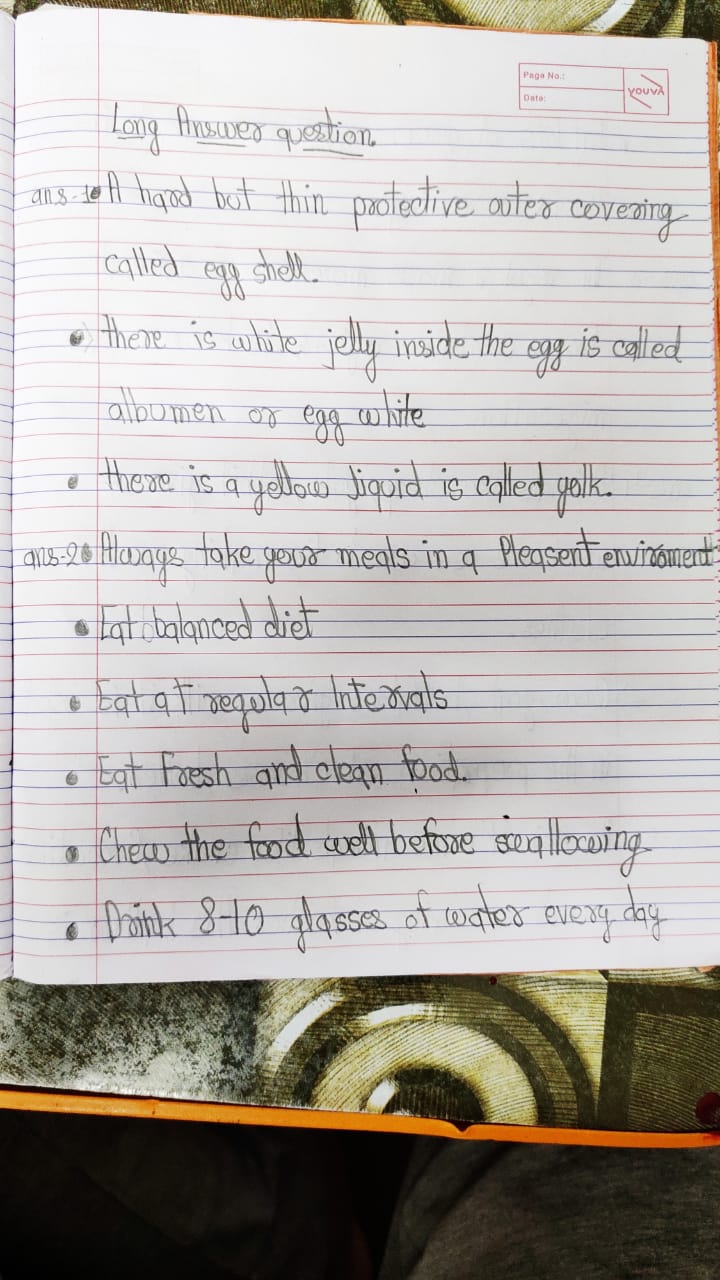 Page No.:
Date:
YOUVA
Long Answer question.
ans-1 • A hard but thin protective outer covering
called egg shell.
• there is white jelly inside the egg is called
albumen or egg white
• there is a yellow liquid is called yolk.
ans-2 • Always take your meals in a Pleasent enviroment
• Eat balanced diet
• Eat at regular Intervals
• Eat Fresh and clean food.
• Chew the food well before swallowing
• Drink 8-10 glasses of water every day